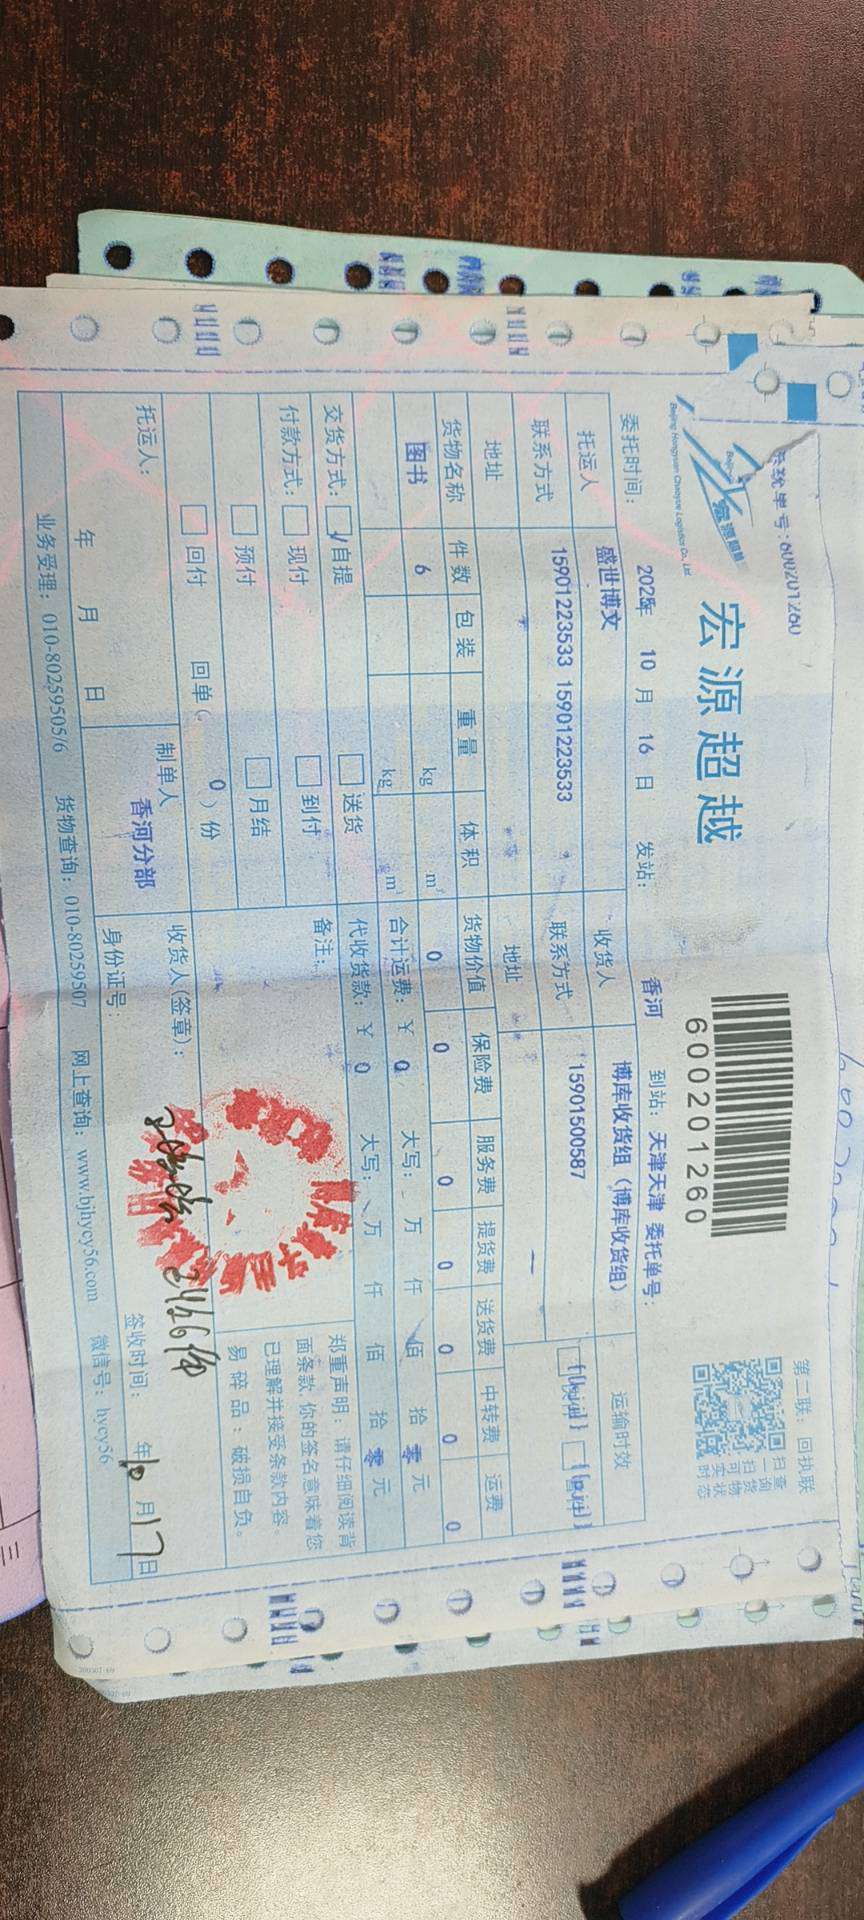 系统单号:600201260
第二联：回执联
宏源超越
Beijing Hongyuan Chaoyue Logistics Co., Ltd.
600201260
扫查一询扫货可物实状时态
委托时间： 2025年 10 月 16 日 发站： 香河 到站：天津天津 委托单号：
托运人 盛世博文 收货人 博库收货组（博库收货组） 运输时效
联系方式 15901223533 15901223533 联系方式 15901500587
地址 地址
货物名称 件数 包装 重量 体积 货物价值 保险费 服务费 提货费 送货费 中转费 运费
图书 6 kg m³ 0 0 0 0 0 0 0
kg m³ 合计运费：￥ 0 大写： 万 仟 佰 拾 零 元
交货方式： 自提 送货 代收货款：￥ 0 大写： 万 仟 佰 拾 零 元
付款方式： 现付 到付 备注：
预付 月结
回付 回单（ 0 ）份
郑重声明：请仔细阅读背
面条款 你的签名意味着您
已理解并接受条款内容
易碎品：破损自负。
托运人： 制单人 收货人(签章)：
香河分部
年 月 日 身份证号: 签收时间： 年 10 月 17 日
业务受理：010-80259505/6 货物查询：010-80259507 网上查询：www.bjhycy56.com 微信号：hycy56